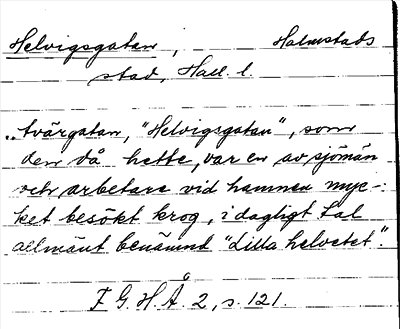 Helvigsgatan, Halmstads
stad, Hall. l.
„tvärgatan, "Helvigsgatan", som
den då hette, var en av sjömän
och arbetare vid hamnen myc-
ket besökt krog, i dagligt tal
allmänt benämnd "Lilla helvetet".
F G. H. Å. 2, s. 121.